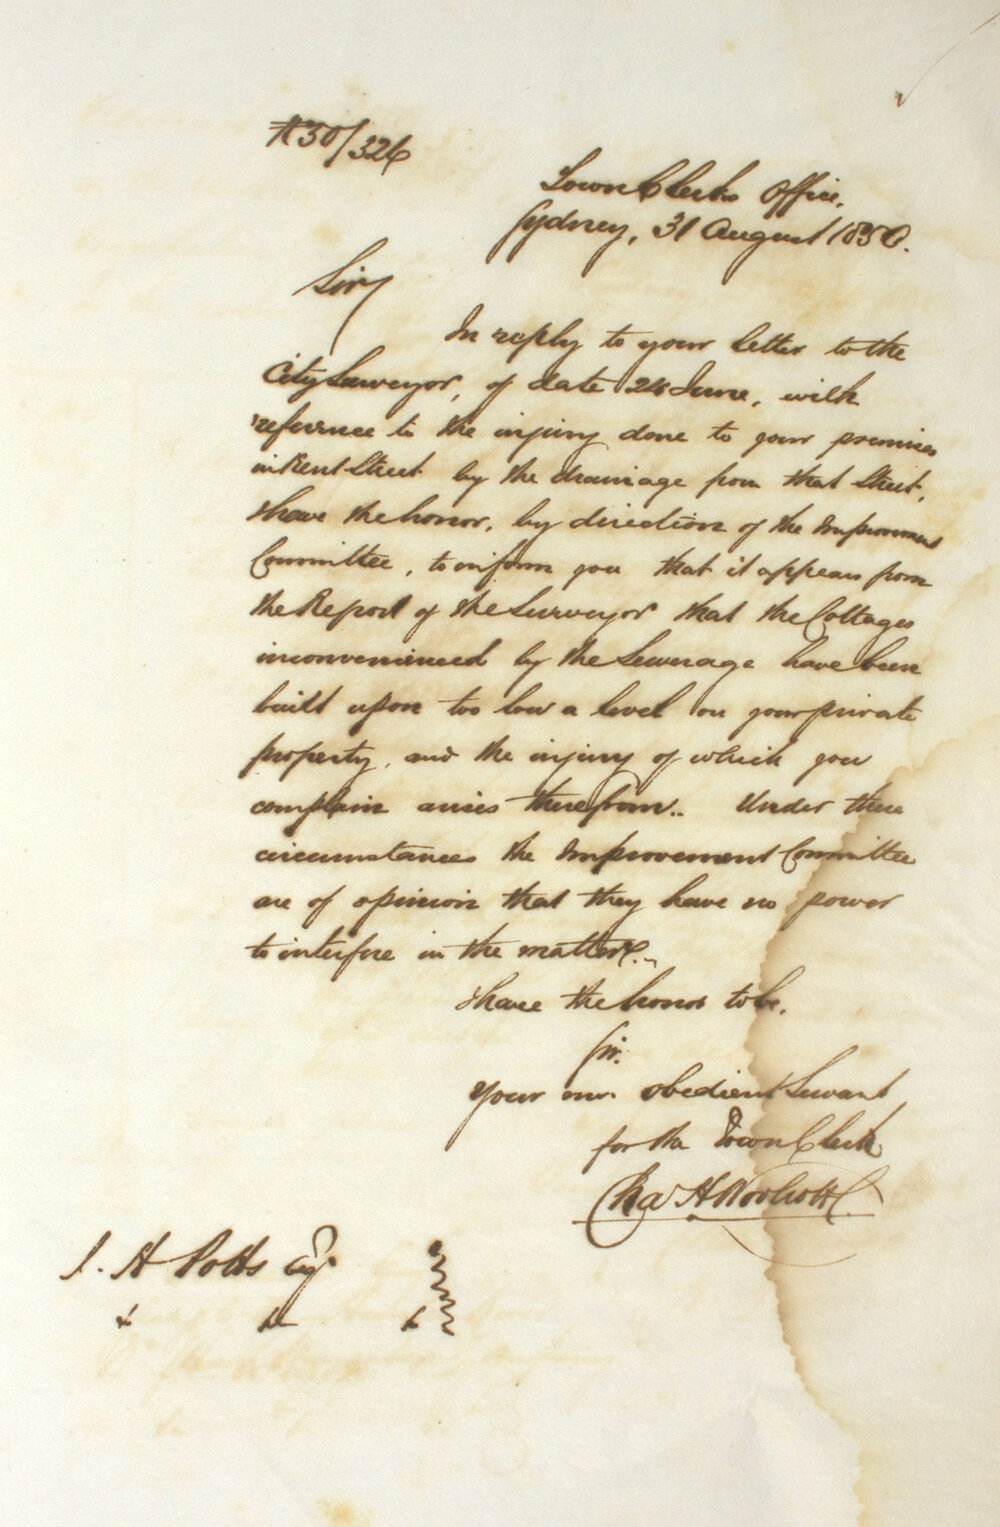 50/326
Town Clerks Office.
Sydney, 31 August 1850.
Sir
In reply to your letter to the
City Surveyor, of date 24 June, with
reference to the injury done to your premises
in Kent Street by the drainage from that Street,
I have the honor, by direction of the Improvement
Committee, to inform you that it appears from
the Report of the Surveyor that the Cottages
inconvenienced by the Sewerage have been
built upon too low a level on your private
property, and the injury of which you
complain arises therefrom.. Under these
circumstances the Improvement Committee
are of opinion that they have no power
to interfere in the matter.
I have the honor to be,
Sir.
Your obedient Servant
for the Town Clerk
Chas H Woolcott
J. H Potts Esqr